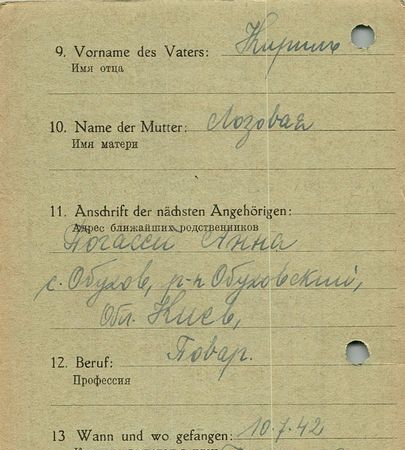 9. Vorname des Vaters: Кирилъ
Имя отца
10. Name der Mutter: Лозовая
Имя матери
11. Anschrift der nächsten Angehörigen:
Адрес ближайших родственников
Погасси Анна
с. Обухов, р-н Обуховский,
Обл. Киев,
12. Beruf: Повар.
Профессия
13 Wann und wo gefangen: 10.7.42